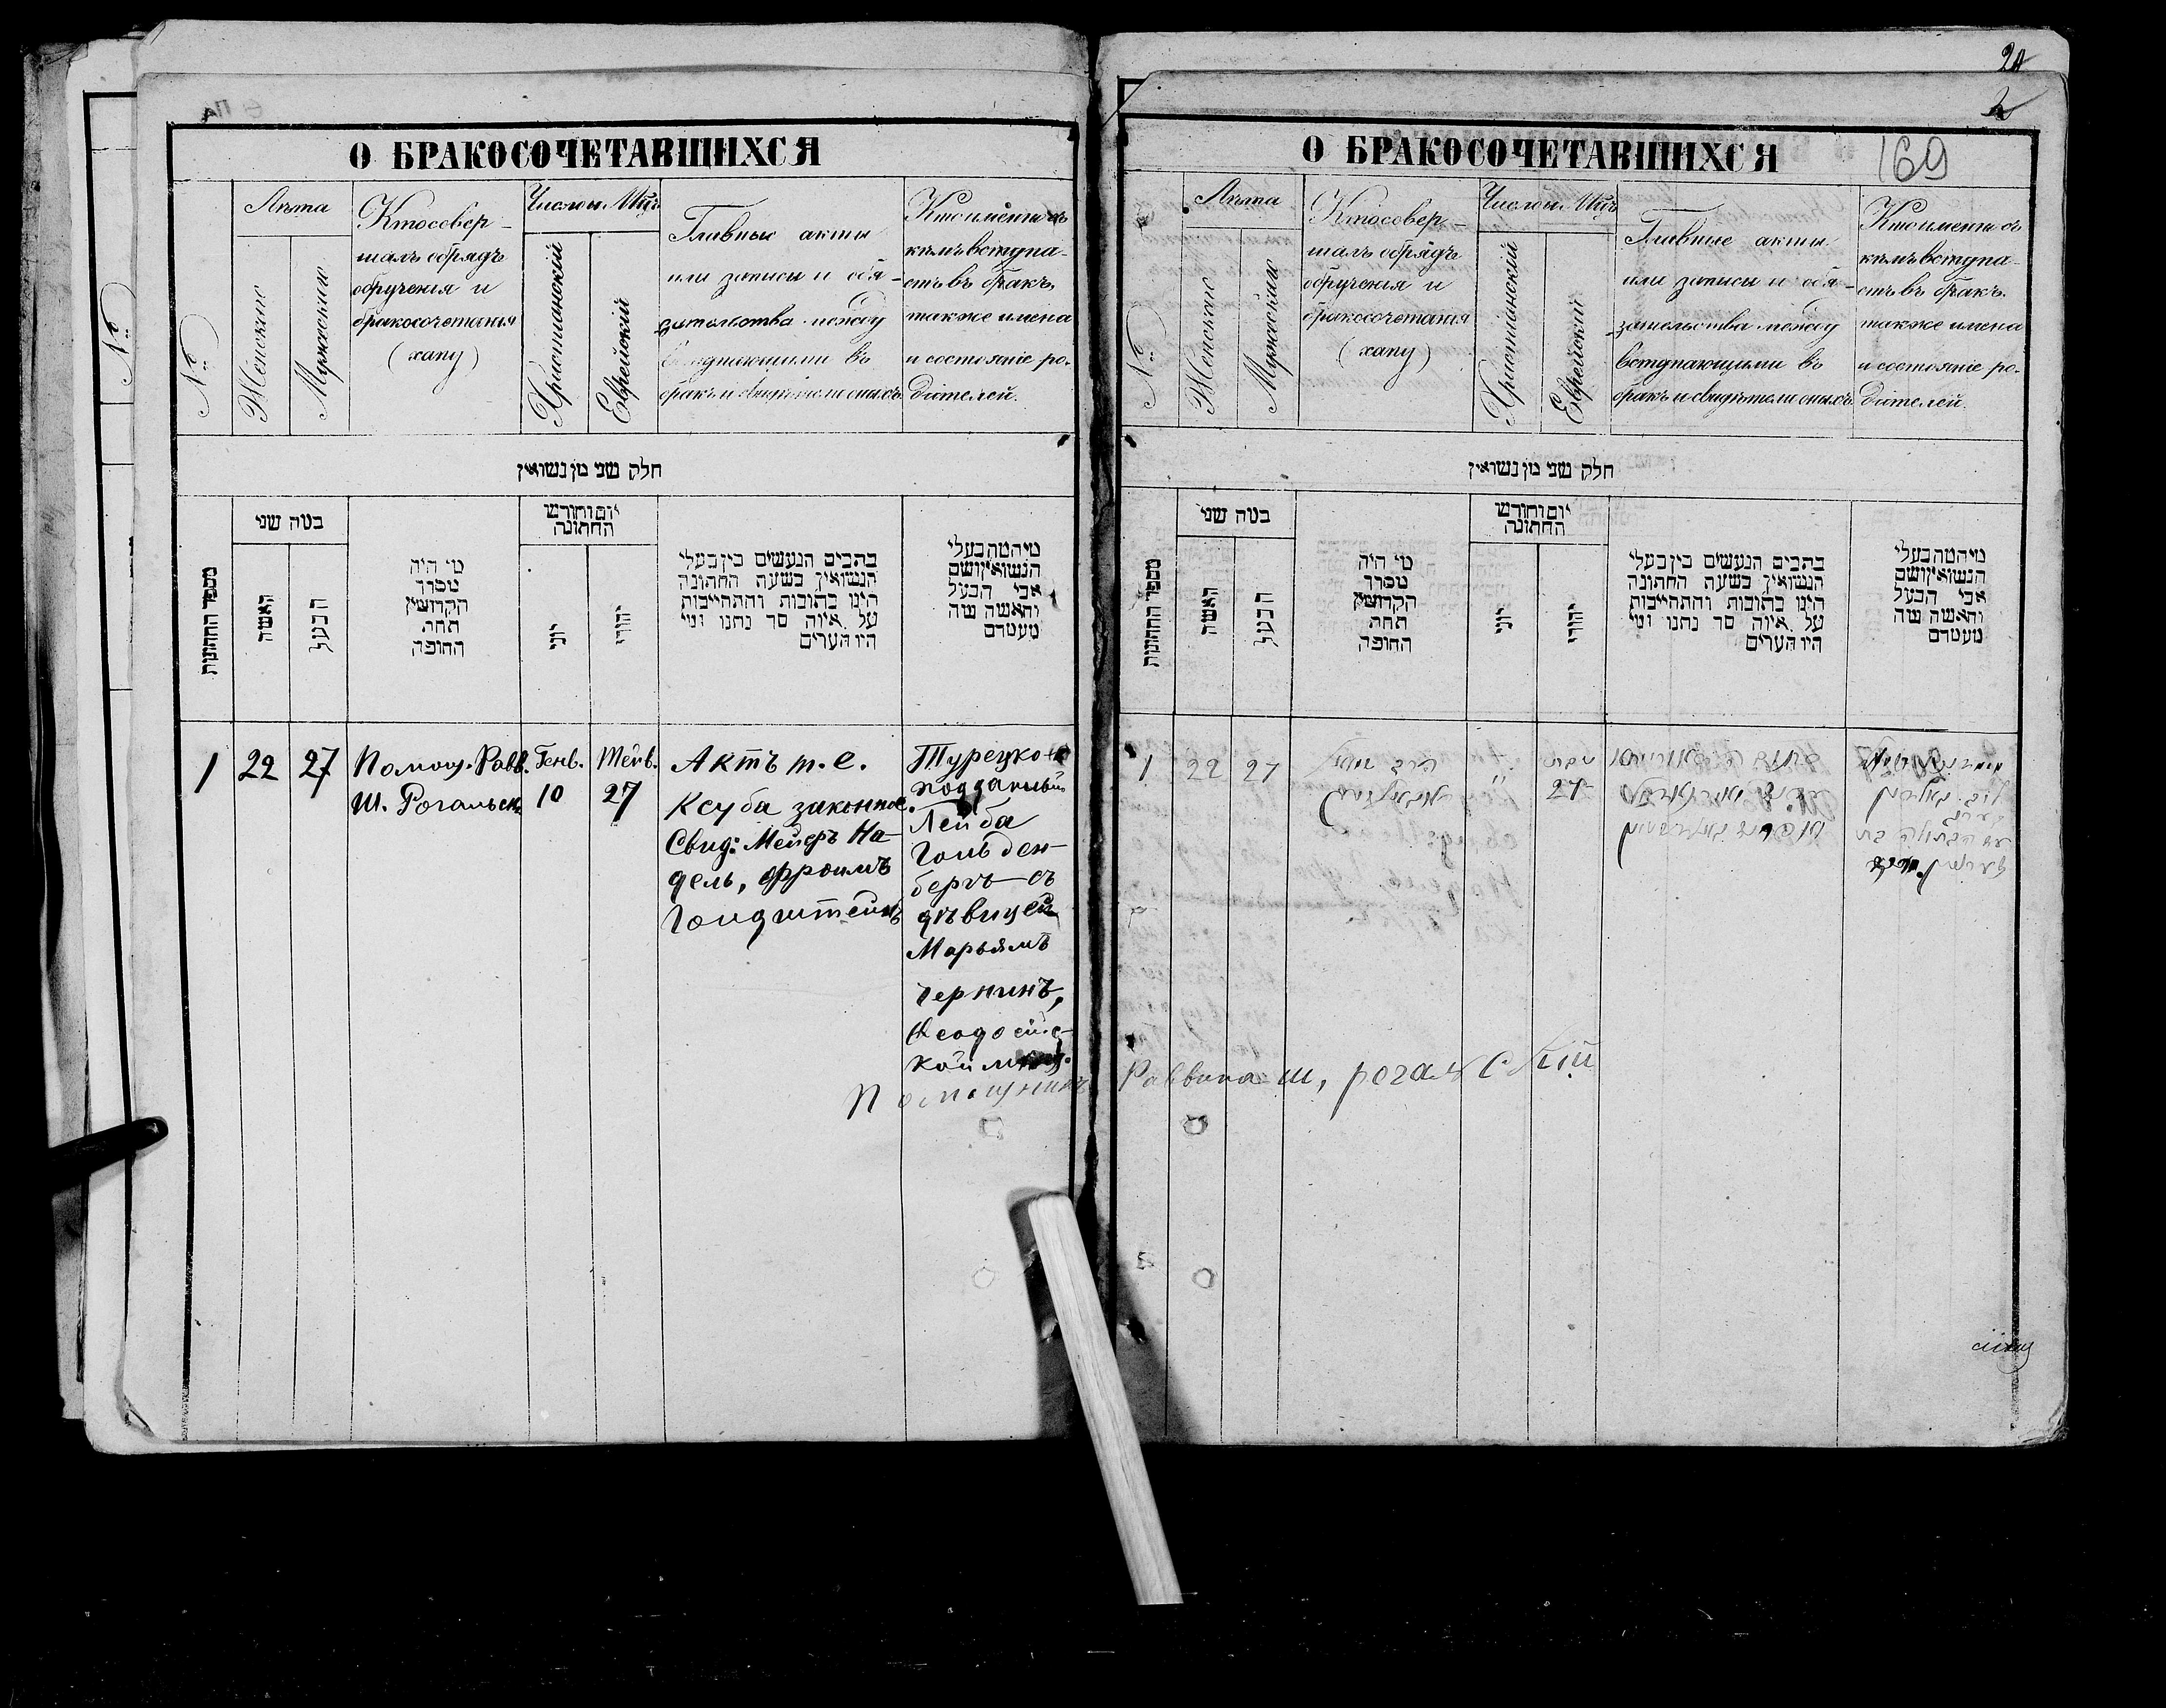 О БРАКОСОЧЕТАВШИХСЯ
№
Лѣта
Женскіе
Мужескіе
Кто совер-
шалъ обрядъ
обрученія и
бракосочетанія
(хапу)
Число и Мцъ
Христіанскій
Еврейскій
Главные акты
или записи и обя-
зательства между
вступающими въ
бракъ и свидѣтели оныхъ
Кто именно съ
кѣмъ вступа-
етъ въ бракъ
также имена
и состояніе ро-
дителей.
חלק שני מן נשואין
מספר החתונות
כמה שני
האשה
הבעל
מי היה
מסדר
הקדושין
תחת
החופה
יום וחודש
החתונה
יוני
יהודי
כתבים הנעשים בין בעלי
הנשואין בשעת החתונה
היינו כתובות והתחייבות
על איזה סך נתנו ומי
היו העדים
מי המה בעלי
הנשואין ושם
אבי הבעל
והאשה ומה
מעמדם
1
22
27
Помощ. Равв.
Ш. Рогальск.
Генв.
10
Тейв.
27
Актъ т. е.
Ксуба законное.
Свид: Мейеръ На-
дель, Фроимъ
Голдштейнъ
Турецко-
подданный
Лейба
Гольден-
бергъ съ
дѣвицей
Марьямъ
Чернинъ,
Ѳеодосійс-
кой
Помощникъ Раввина Ш. Рогальскій
24
169
О БРАКОСОЧЕТАВШИХСЯ
№
Лѣта
Женскіе
Мужескіе
Кто совер-
шалъ обрядъ
обрученія и
бракосочетанія
(хапу)
Число и Мцъ
Христіанскій
Еврейскій
Главные акты
или записи и обя-
зательства между
вступающими въ
бракъ и свидѣтели оныхъ
Кто именно съ
кѣмъ вступа-
етъ въ бракъ
также имена
и состояніе ро-
дителей.
חלק שני מן נשואין
מספר החתונות
כמה שני
האשה
הבעל
מי היה
מסדר
הקדושין
תחת
החופה
יום וחודש
החתונה
יוני
יהודי
כתבים הנעשים בין בעלי
הנשואין בשעת החתונה
היינו כתובות והתחייבות
על איזה סך נתנו ומי
היו העדים
מי המה בעלי
הנשואין ושם
אבי הבעל
והאשה ומה
מעמדם
1
22
27
טבת
27